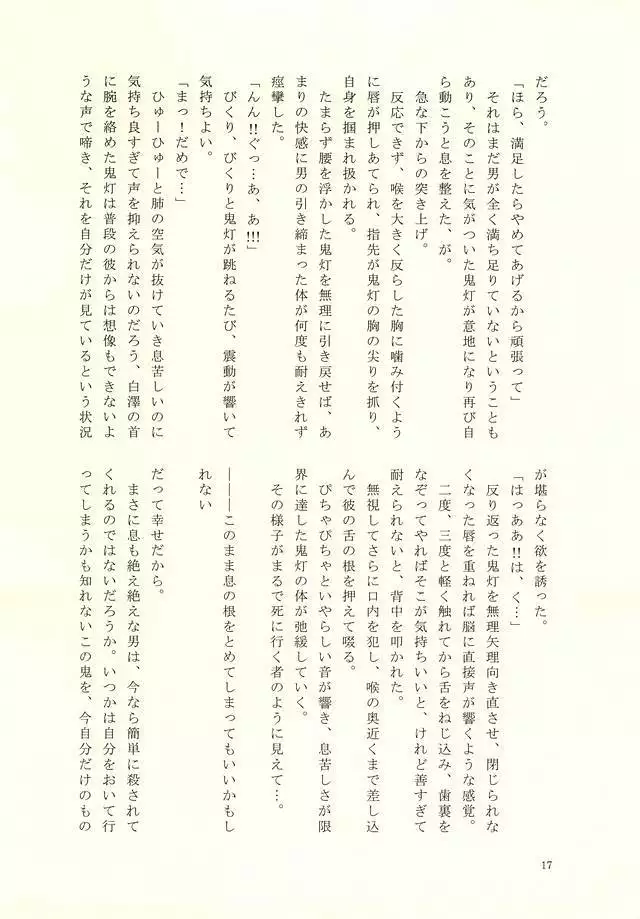 だろう。
「ほら、満足したらやめてあげるから頑張って」
それはまだ男が全く満ち足りていないということも
あり、そのことに気がついた鬼灯が意地になり再び自
ら動こうと息を整えた、が。
急な下からの突き上げ。
反応できず、喉を大きく反らした胸に噛み付くよう
に唇が押しあてられ、指先が鬼灯の胸の尖りを抓り、
自身を掴まれ扱かれる。
たまらず腰を浮かした鬼灯を無理に引き戻せば、あ
まりの快感に男の引き締まった体が何度も耐えきれず
痙攣した。
「んん!!ぐっ…あ、あ!!!」
びくり、びくりと鬼灯が跳ねるたび、震動が響いて
気持ちよい。
「まっ!だめで…」
ひゅーひゅーと肺の空気が抜けていき息苦しいのに
気持ち良すぎて声を抑えられないのだろう、白澤の首
に腕を絡めた鬼灯は普段の彼からは想像もできないよ
うな声で啼き、それを自分だけが見ているという状況
が堪らなく欲を誘った。
「はっああ!!は、く…」
反り返った鬼灯を無理矢理向き直させ、閉じられな
くなった唇を重ねれば脳に直接声が響くような感覚。
二度、三度と軽く触れてから舌をねじ込み、歯裏を
なぞってやればそこが気持ちいいと、けれど善すぎて
耐えられないと、背中を叩かれた。
無視してさらに口内を犯し、喉の奥近くまで差し込
んで彼の舌の根を押えて啜る。
ぴちゃぴちゃといやらしい音が響き、息苦しさが限
界に達した鬼灯の体が弛緩していく。
その様子がまるで死に行く者のように見えて…。
―――このまま息の根をとめてしまってもいいかもし
れない
だって幸せだから。
まさに息も絶え絶えな男は、今なら簡単に殺されて
くれるのではないだろうか。いつかは自分をおいて行
ってしまうかも知れないこの鬼を、今自分だけのもの
17